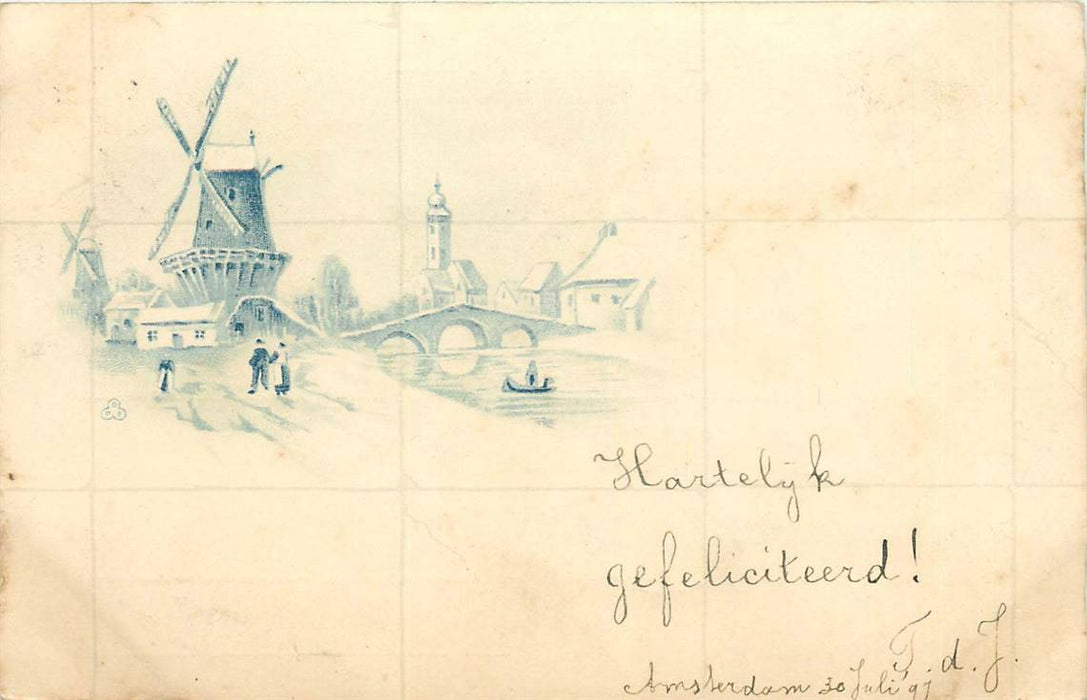 Hartelijk
gefeliciteerd!
T. d. J.
Amsterdam 30 Juli '97